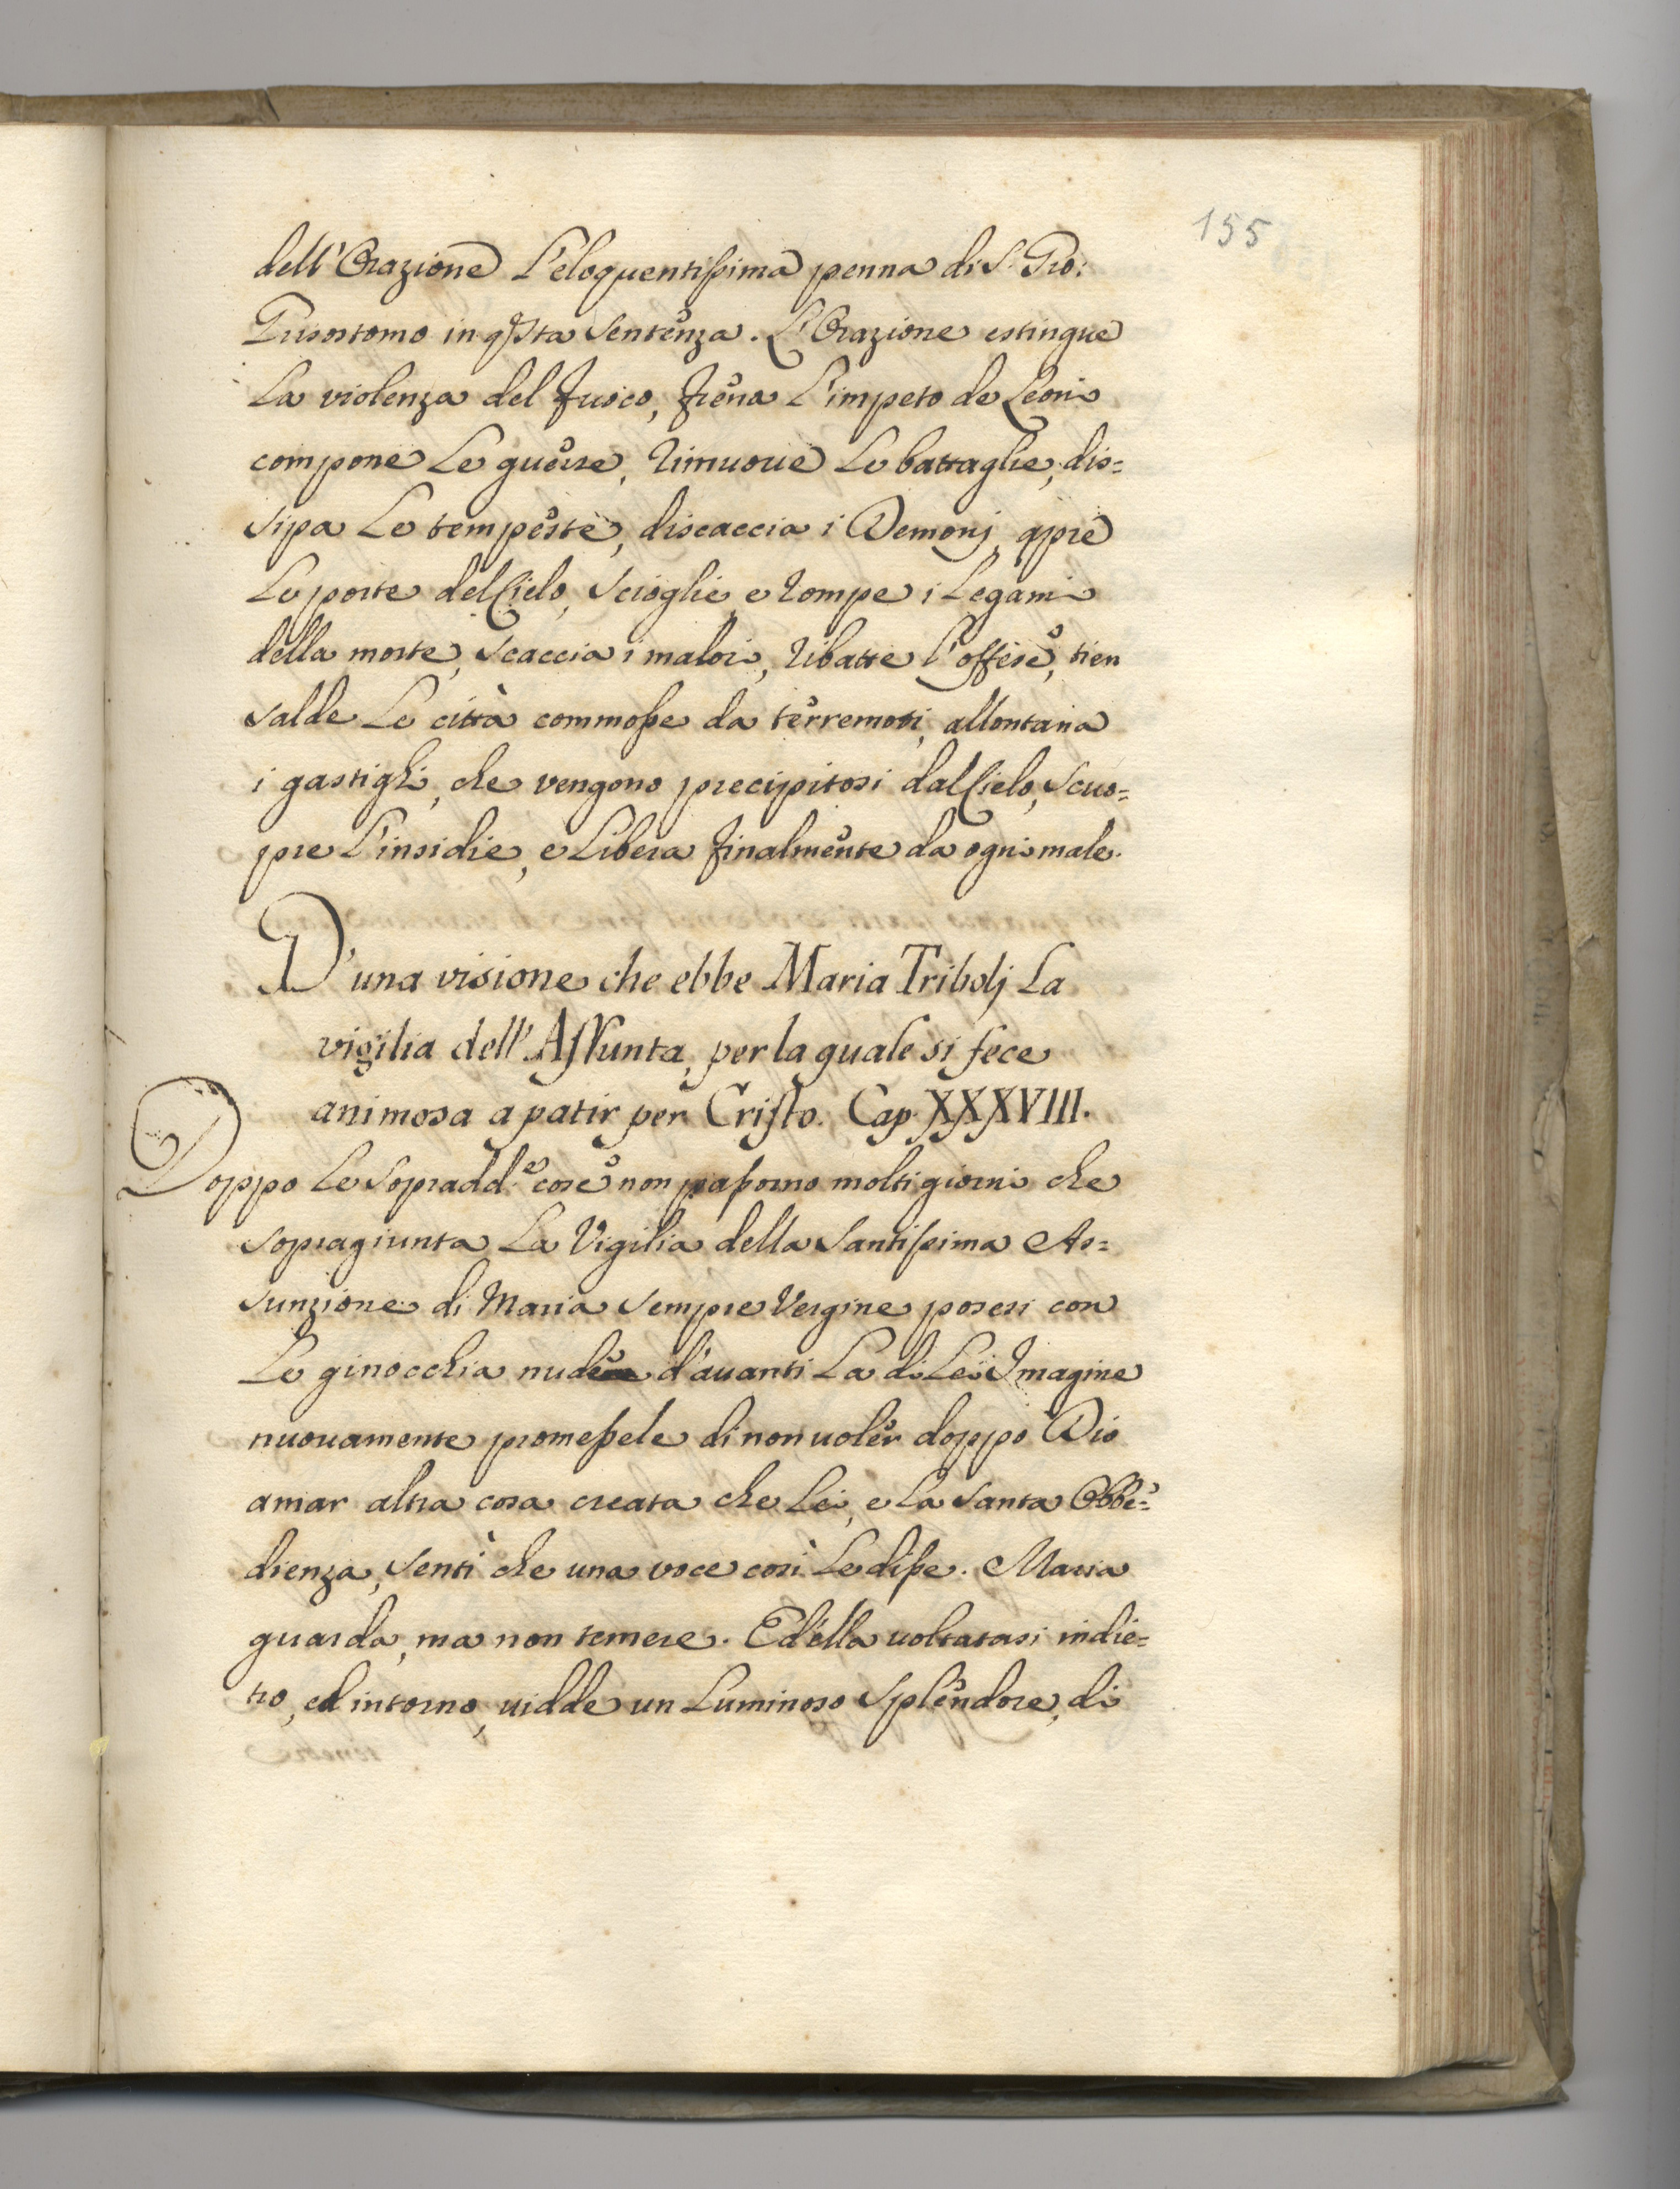 155
dell'Orazione L'eloquentissima penna di S. Gio:
Grisostomo in qsta sentenza. L'Orazione estingue
La violenza del fuoco, frena L'impeto de Leoni
compone Le guerre, rimuove Le battaglie, dis=
sipa Le tempeste, discaccia i Demonj, apre
Le porte del Cielo, scioglie e rompe i Legami
della morte, scaccia i malori, ribatte l'offese, tien
salde Le città commosse da terremoti, allontana
i gastighi, che vengono precipitosi dal Cielo, scuo=
pre L'insidie, e Libera finalmente da ogni male.
D'una visione che ebbe Maria Tribolj La
vigilia dell'Assunta, per la quale si fece
animosa a patir per Cristo. Cap. XXXVIII.
Doppo Le sopradd.e cose non passorno molti giorni che
sopragiunta La Vigilia della Santissima As=
sunzione di Maria sempre Vergine posesi con
Le ginocchia nude d'auanti La di Lei Imagine
nuouamente promessele di non uoler doppo Dio
amar altra cosa creata che Lei, e La Santa Obbe=
dienza, sentì che una voce così Le disse. Maria
guarda, ma non temere. Ed ella uoltatasi indie=
tro, ed intorno, uidde un Luminoso splendore, di